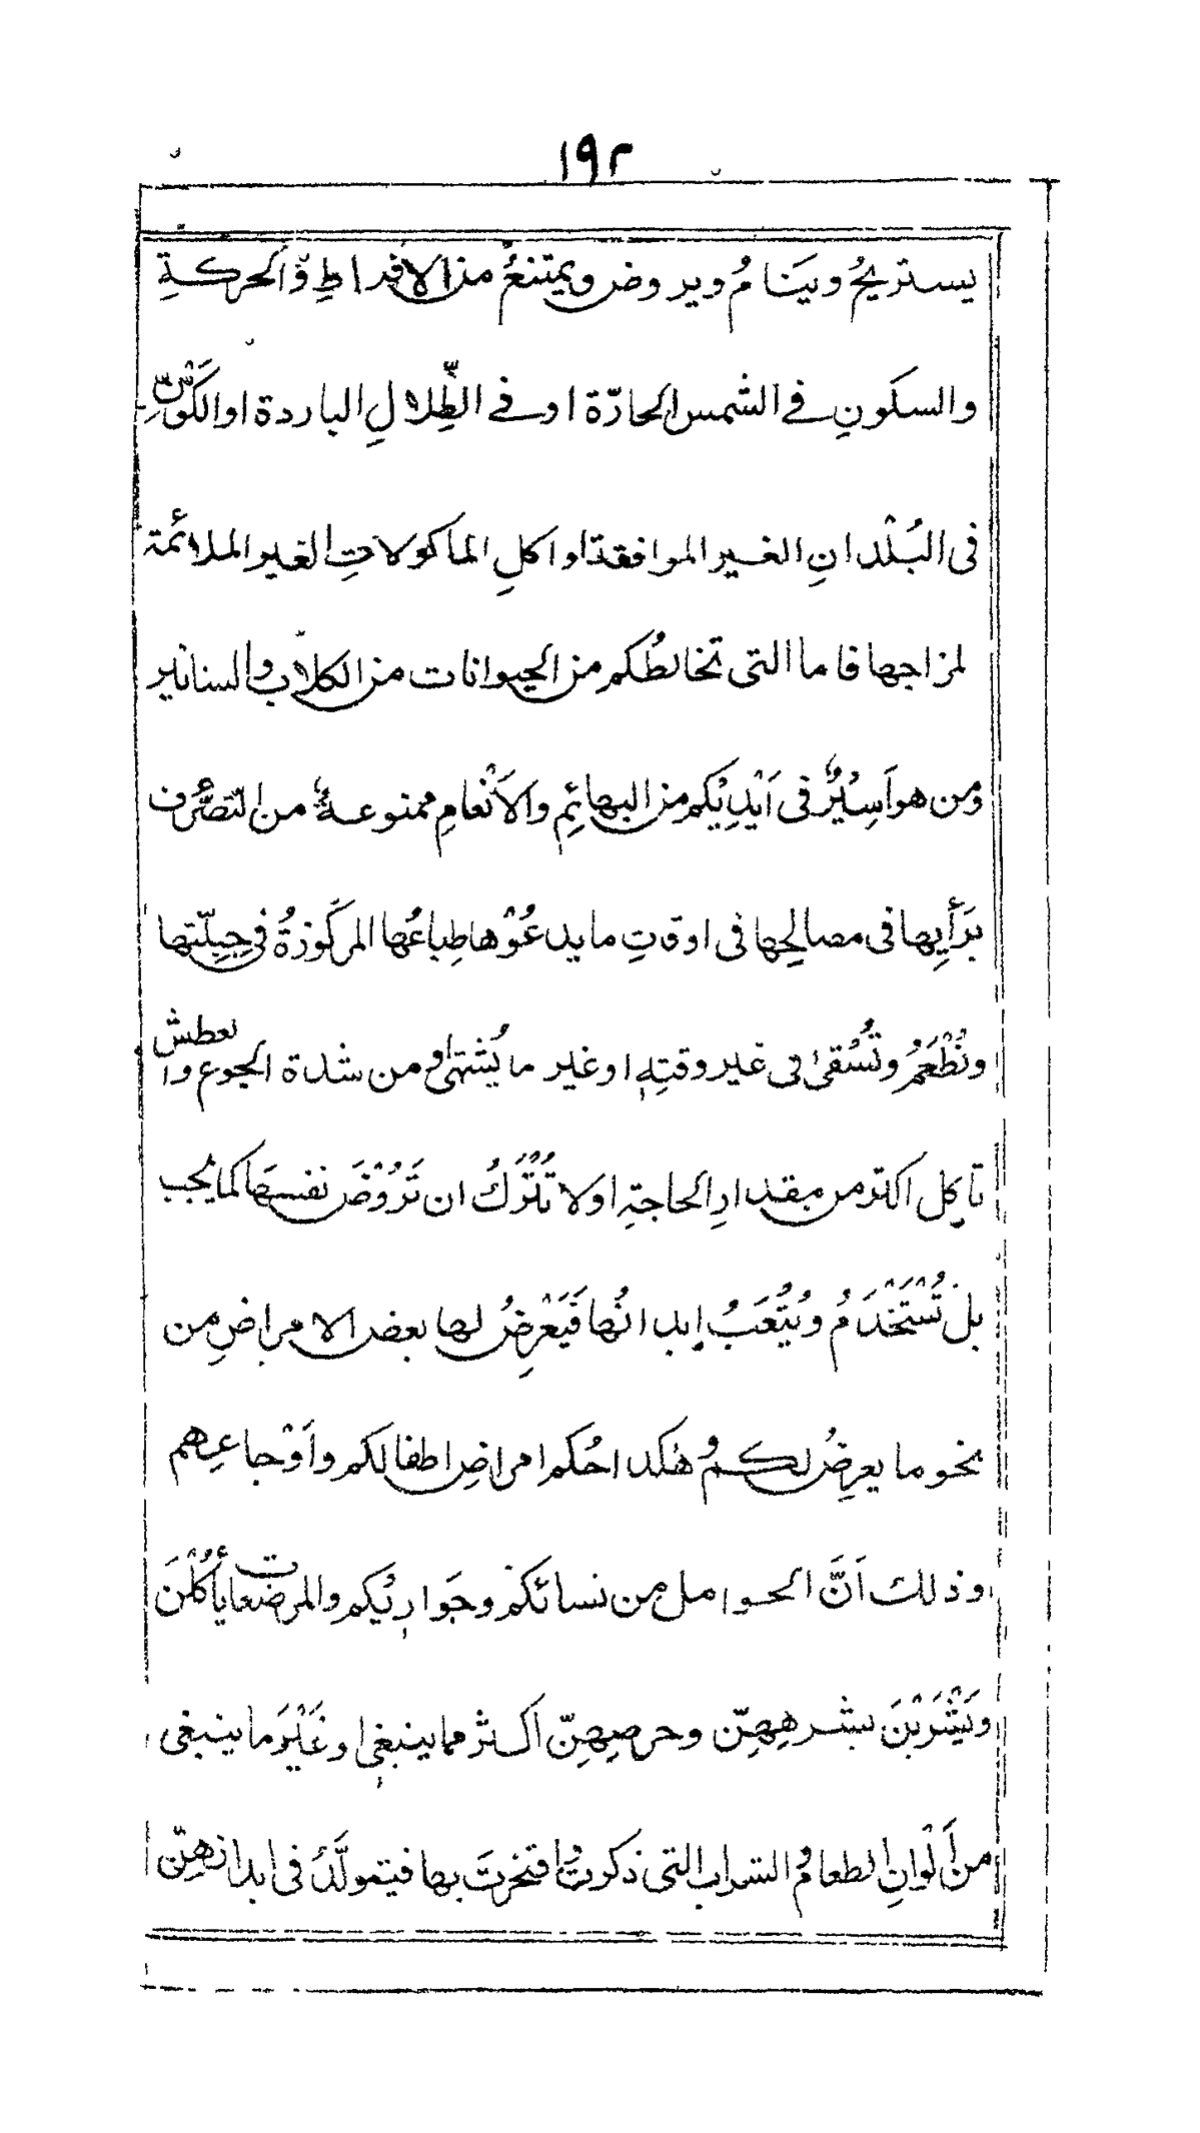 ١٩٢
يستريحُ وينَامُ ويروض ويمتنعُ من الافراطِ والحركةِ
والسكونِ فے الشمس الحارّة او فے الظِّلالِ الباردة او الكَوْنِ
فی البُلْدانِ الغير الموافقة او اكلِ الماكولاتِ الغير الملائمة
لمزاجها فاما التی تخالطُكم من الحيوانات من الكلاب والسنانير
ومن هو اَسِيْرٌ فی اَيْدِيْكم من البهائِمِ والاَنْعامِ ممنوعةٌ من التصرُّف
برَأيِها فی مصالِحِها فی اوقاتِ ما يدعُوْها طِباعُها المركَوزةُ فی جبِلّتها
وتُطْعَمُ وتُسْقیٰ فی غير وقتِهٖ او غير ما يُشْتهٰی ومن شدة الجوع والعطش
تاكل اكثر من مقدارِ الحاجةِ او لا تُتْرَكُ ان تَرُوْضَ نفسَها كما يُجب
بل تُسْتَخْدَمُ ويُتْعَبُ ابدانُها فَيَعْرِضُ لها بعض الامراضِ من
نحو ما يعرِضُ لكم وهٰكذا حُكم امراضِ اطفالكم واَوْجاعِهم
وذلك اَنَّ الحوامل من نسائكم وجَوارِيْكم والمرضعات يأكُلْنَ
ويَشْرَبْنَ بشرهِهِنّ وحرصِهِنّ اكثر مما ينبغی او غَيْرَ ما ينبغی
من اَلْوانِ الطعام والشراب التی ذكرتَ وافتخرتَ بها فيتولَّدُ فی ابدانهِنّ